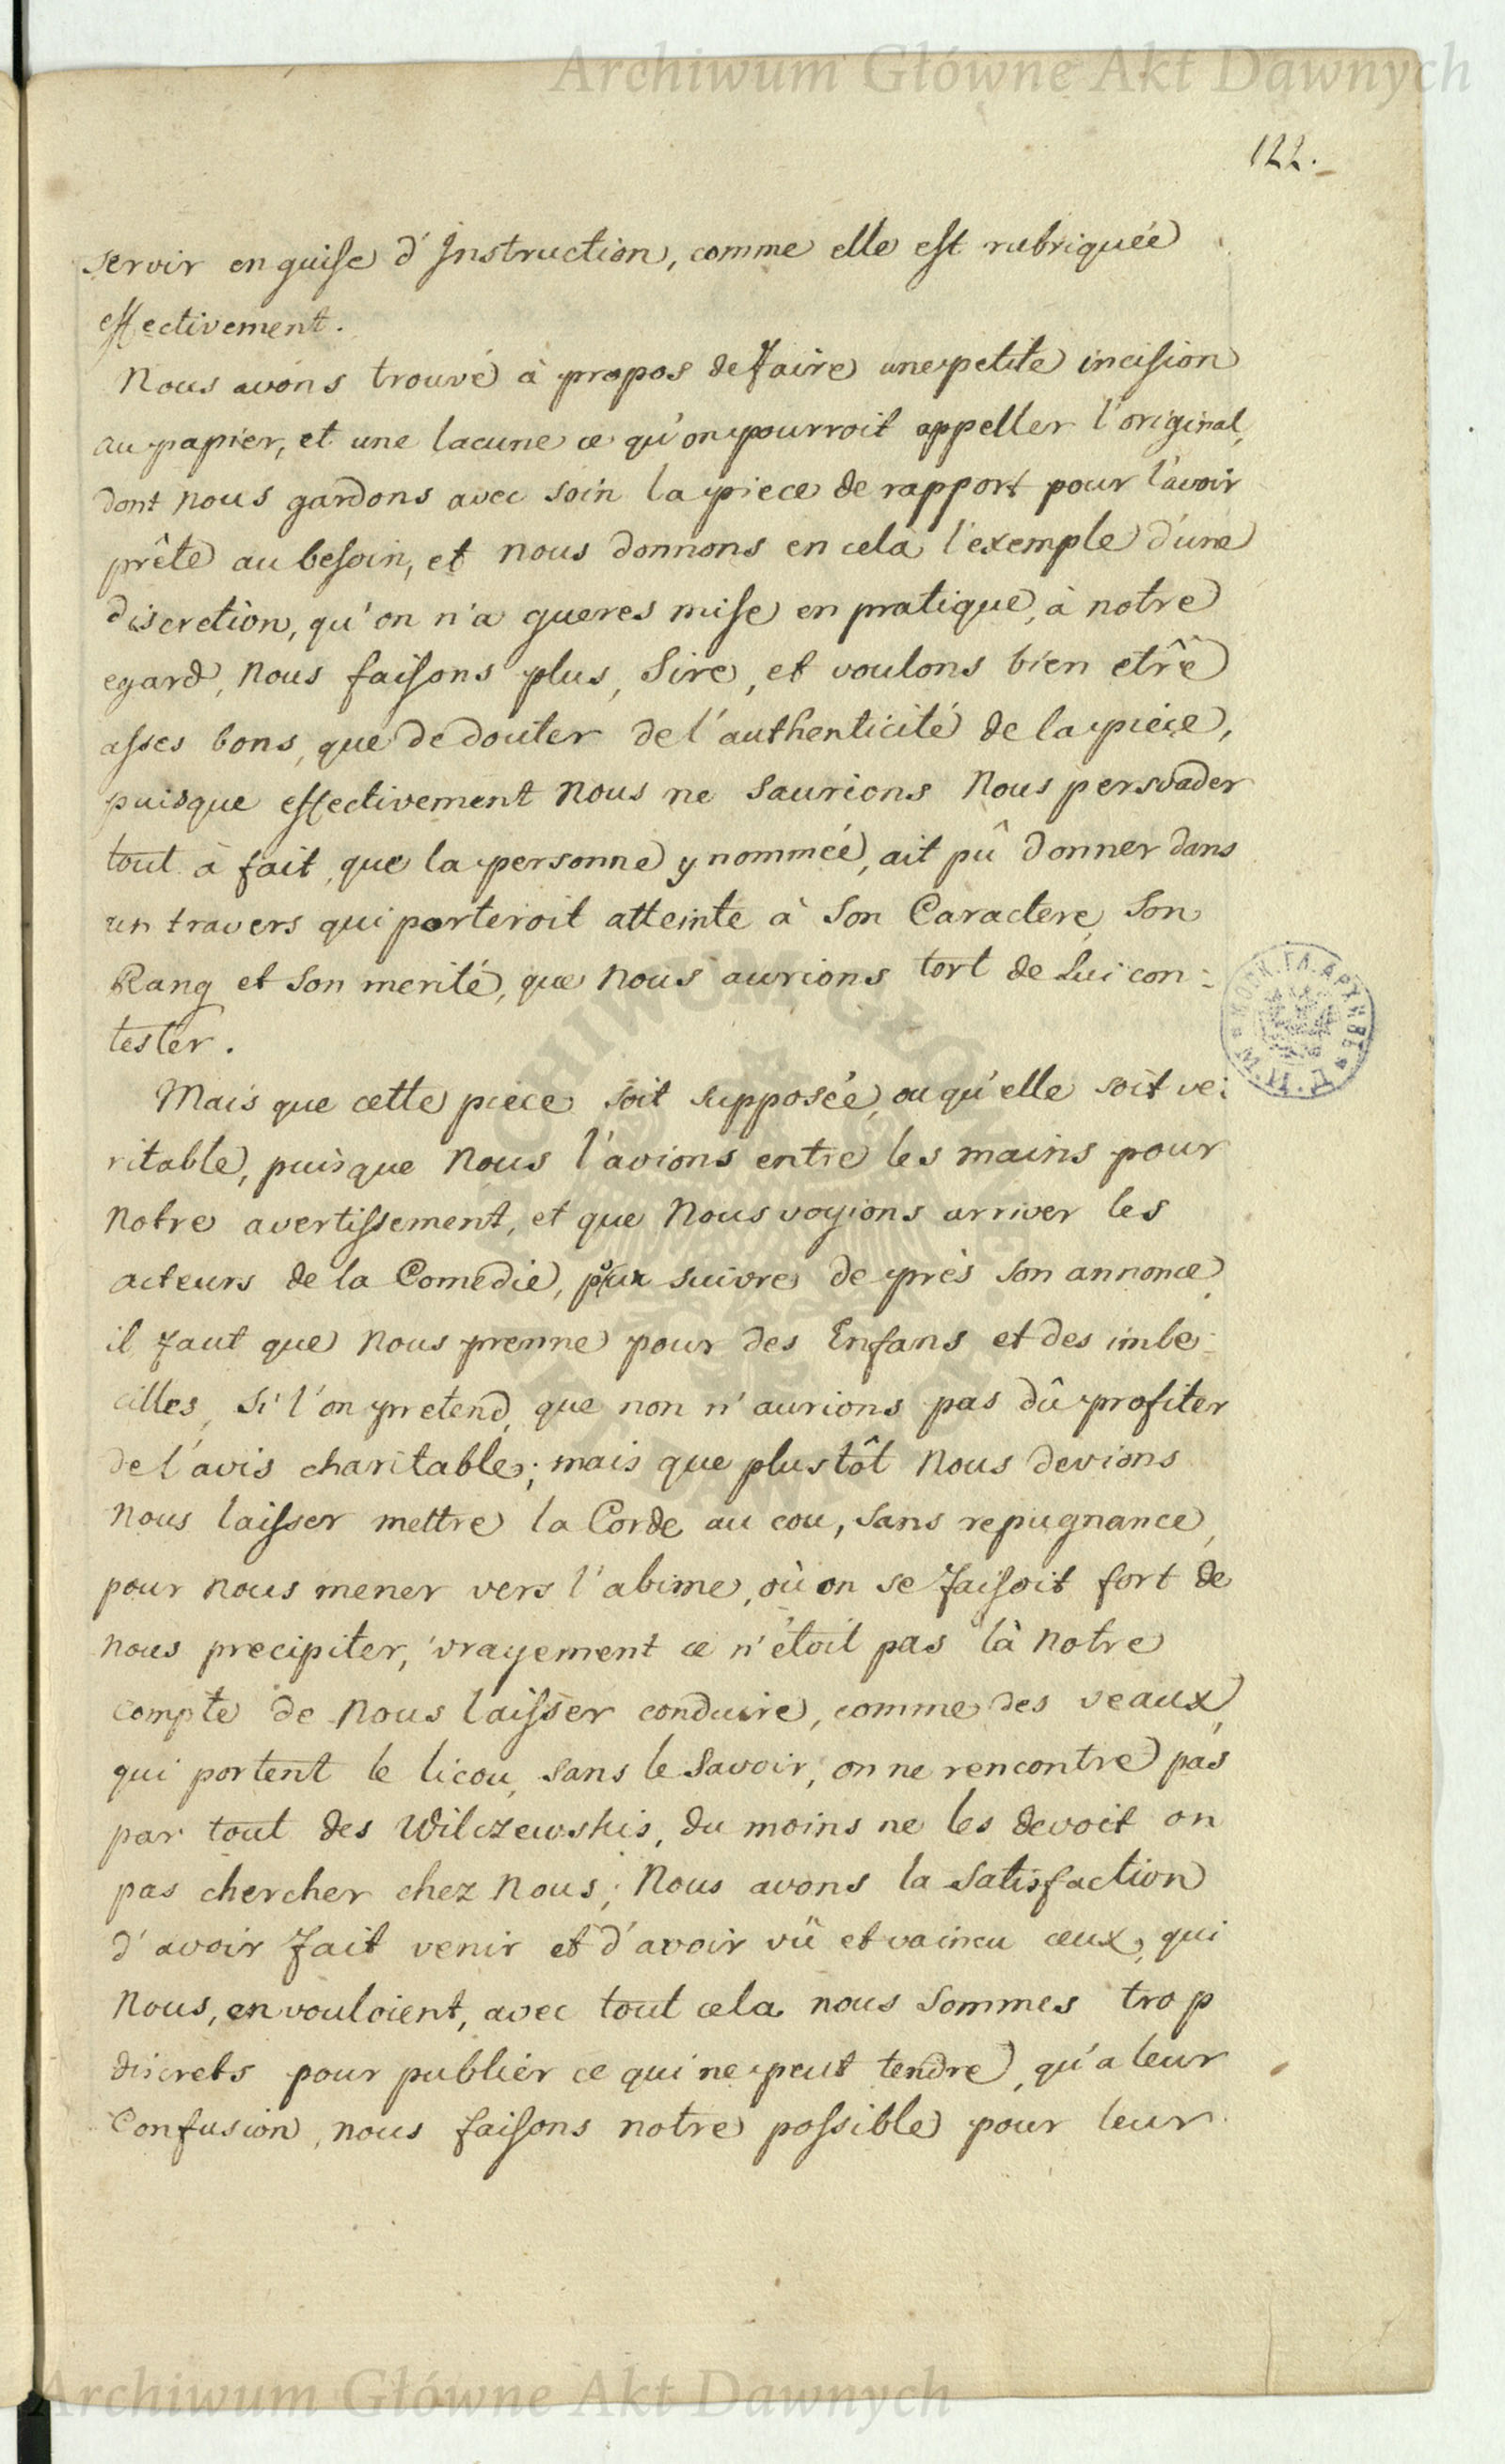 Archiwum Główne Akt Dawnych
122.
servir en guise d'Instruction, comme elle est rubriquée
effectivement.
Nous avons trouvé à propos de faire une petite incision
au papier, et une lacune ce qu'on pourroit appeller l'original,
dont nous gardons avec soin la piece de rapport pour l'avoir
prête au besoin, et nous donnons en cela l'exemple d'une
discretion, qu'on n'a gueres mise en pratique, à notre
egard, nous faisons plus, Sire, et voulons bien etrê
asses bons, que de douter de l'authenticité de la piéce,
puisque effectivement nous ne saurions nous persvader
tout à fait, que la personne y nommeé, ait pû donner dans
un travers qui porteroit atteinte à Son Caractere, Son
Rang et Son merité, que nous aurions tort de Lui con:
tester.
Mais que cette piece soit supposée, ou qu'elle soit ve:
ritable, puisque nous l'avions entre les mains pour
notre avertissement, et que nous voyions arriver les
acteurs de la Comedie, pour suivre de près son annonce,
il faut que nous prenne pour des Enfans et des imbe:
cilles, si l'on pretend, que non n'aurions pas dû profiter
de l'avis charitable; mais que plustôt nous devions
nous laisser mettre la Corde au cou, sans repugnance,
pour nous mener vers l'abime, où on se faisoit fort de
nous precipiter, vrayement ce n'étoit pas là notre
compte de nous laisser conduire, comme des veaux,
qui portent le licou, sans le savoir, on ne rencontre pas
par tout des Wilczewskis, du moins ne les devoit on
pas chercher chez nous; nous avons la satisfaction
d'avoir fait venir et d'avoir vû et vaincu ceux, qui
nous, en vouloient, avec tout cela nous sommes trop
discrets pour publier ce qui ne peut tendre, qu'a leur
Confusion, nous faisons notre possible pour leur
Archiwum Główne Akt Dawnych